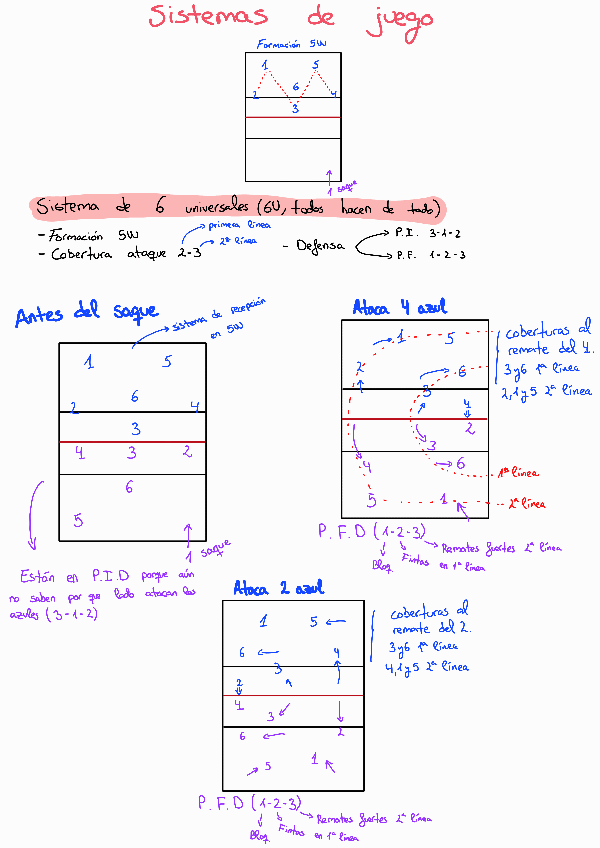 Sistemas de juego
Formación 5W
1 5
6
2 4
3
1 saque
Sistema de 6 universales (6U, todos hacen de todo)
- Formación 5W
- Cobertura ataque 2-3
primera línea
2ª línea
- Defensa
P.I. 3-1-2
P.F. 1-2-3
Antes del saque
Sistema de recepción
en 5W
1 5
6
2 4
3
4 3 2
6
5
1 saque
Están en P.I.D porque aún
no saben por que lado atacan los
azules (3-1-2)
Ataca 4 azul
1 5
2 6
3
4
2
3
4 6
5 1
coberturas al
remate del 4.
3 y 6 1ª línea
2, 1 y 5 2ª línea
1ª línea
2ª línea
P.F.D (1-2-3)
Remates fuertes 2ª línea
Fintas en 1ª línea
Bloq
Ataca 2 azul
1 5
6 4
3
2
4
3
6 2
5 1
coberturas al
remate del 2.
3 y 6 1ª línea
4, 1 y 5 2ª línea
P.F.D (1-2-3)
Remates fuertes 2ª línea
Fintas en 1ª línea
Bloq